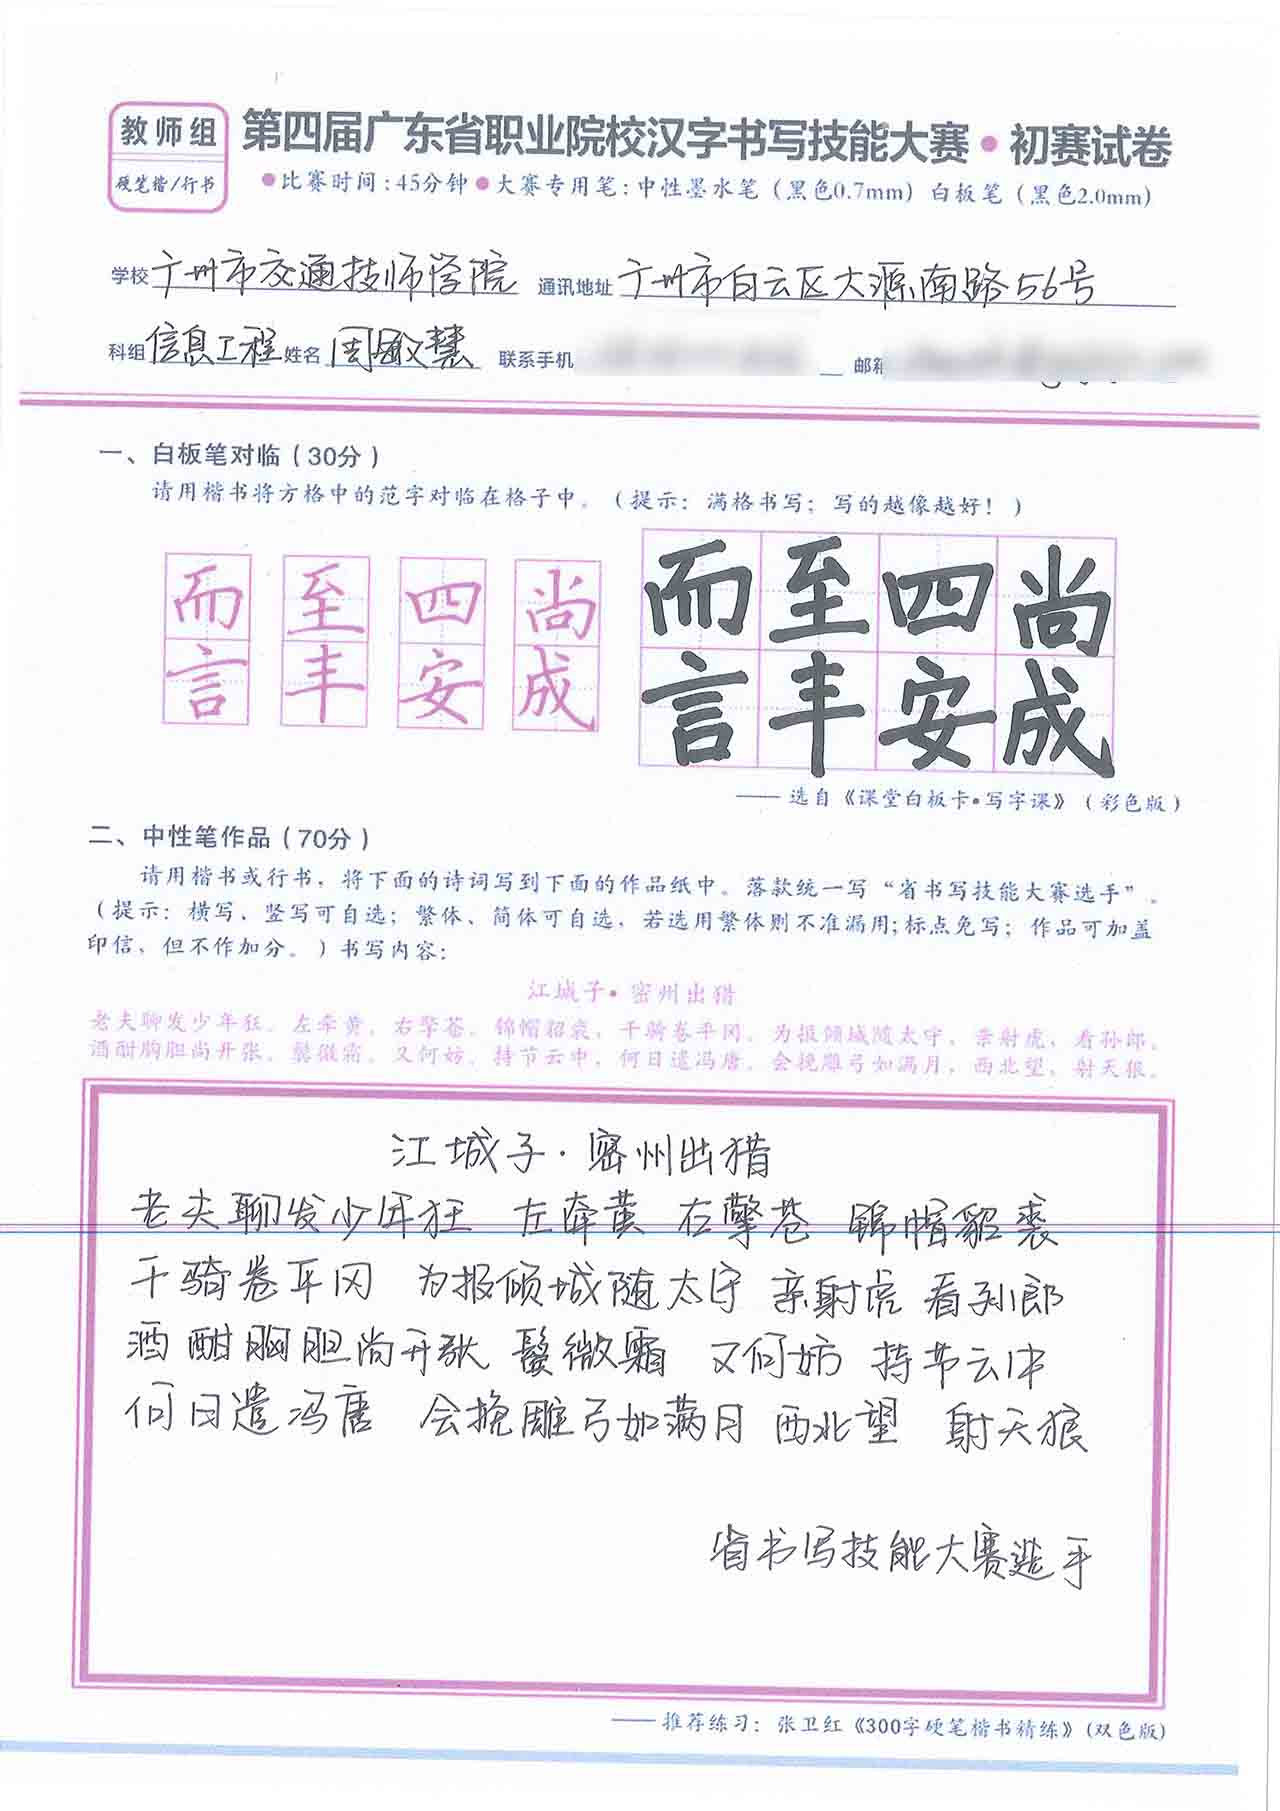 教师组
硬笔楷/行书
第四届广东省职业院校汉字书写技能大赛·初赛试卷
●比赛时间:45分钟●大赛专用笔:中性墨水笔（黑色0.7mm）白板笔（黑色2.0mm）
学校 广州市交通技师学院 通讯地址 广州市白云区大源南路56号
科组 信息工程 姓名 周敏慧 联系手机 邮箱
一、白板笔对临（30分）
请用楷书将方格中的范字对临在格子中。（提示：满格书写；写的越像越好！）
而 至 四 尚 而 至 四 尚
言 丰 安 成 言 丰 安 成
——选自《课堂白板卡•写字课》（彩色版）
二、中性笔作品（70分）
请用楷书或行书，将下面的诗词写到下面的作品纸中。落款统一写“省书写技能大赛选手”。
（提示：横写、竖写可自选；繁体、简体可自选，若选用繁体则不准漏用;标点免写；作品可加盖
印信，但不作加分。）书写内容：
江城子•密州出猎
老夫聊发少年狂，左牵黄，右擎苍，锦帽貂裘，千骑卷平冈。为报倾城随太守，亲射虎，看孙郎。
酒酣胸胆尚开张，鬓微霜，又何妨，持节云中，何日遣冯唐，会挽雕弓如满月，西北望，射天狼。
江城子·密州出猎
老夫聊发少年狂 左牵黄 右擎苍 锦帽貂裘
千骑卷平冈 为报倾城随太守 亲射虎 看孙郎
酒酣胸胆尚开张 鬓微霜 又何妨 持节云中
何日遣冯唐 会挽雕弓如满月 西北望 射天狼
省书写技能大赛选手
——推荐练习：张卫红《300字硬笔楷书精练》(双色版)